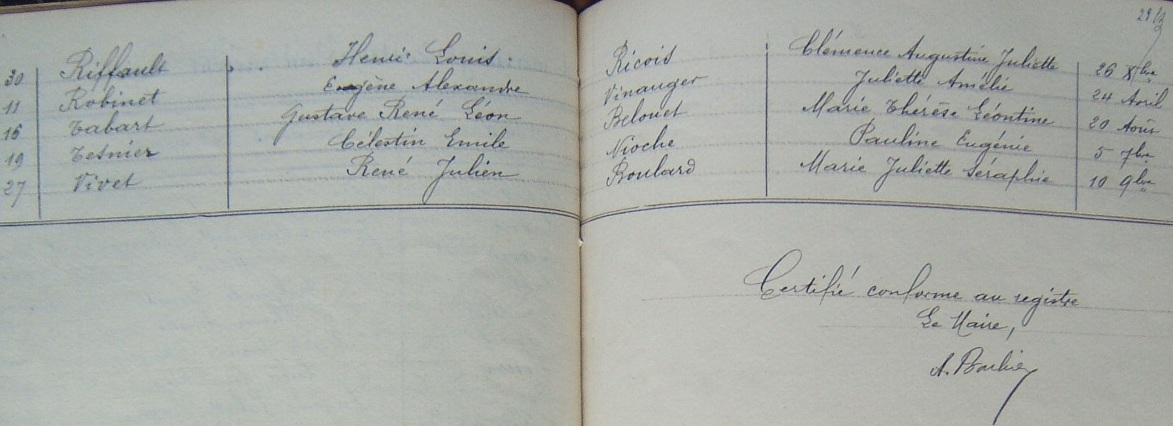 30 Riffault Henri Louis Ricois Clémence Augustine Juliette 26 Xbre
11 Robinet Eugène Alexandre Vinauger Juliette Amélie 24 Avril
16 Tabart Gustave René Léon Belouet Marie Thérèse Léontine 20 Août
19 Tesnier Célestin Emile Nioche Pauline Eugénie 5 7bre
27 Vivet René Julien Boulard Marie Juliette Séraphie 10 9bre
Certifié conforme au registre
Le Maire,
A. Barbier